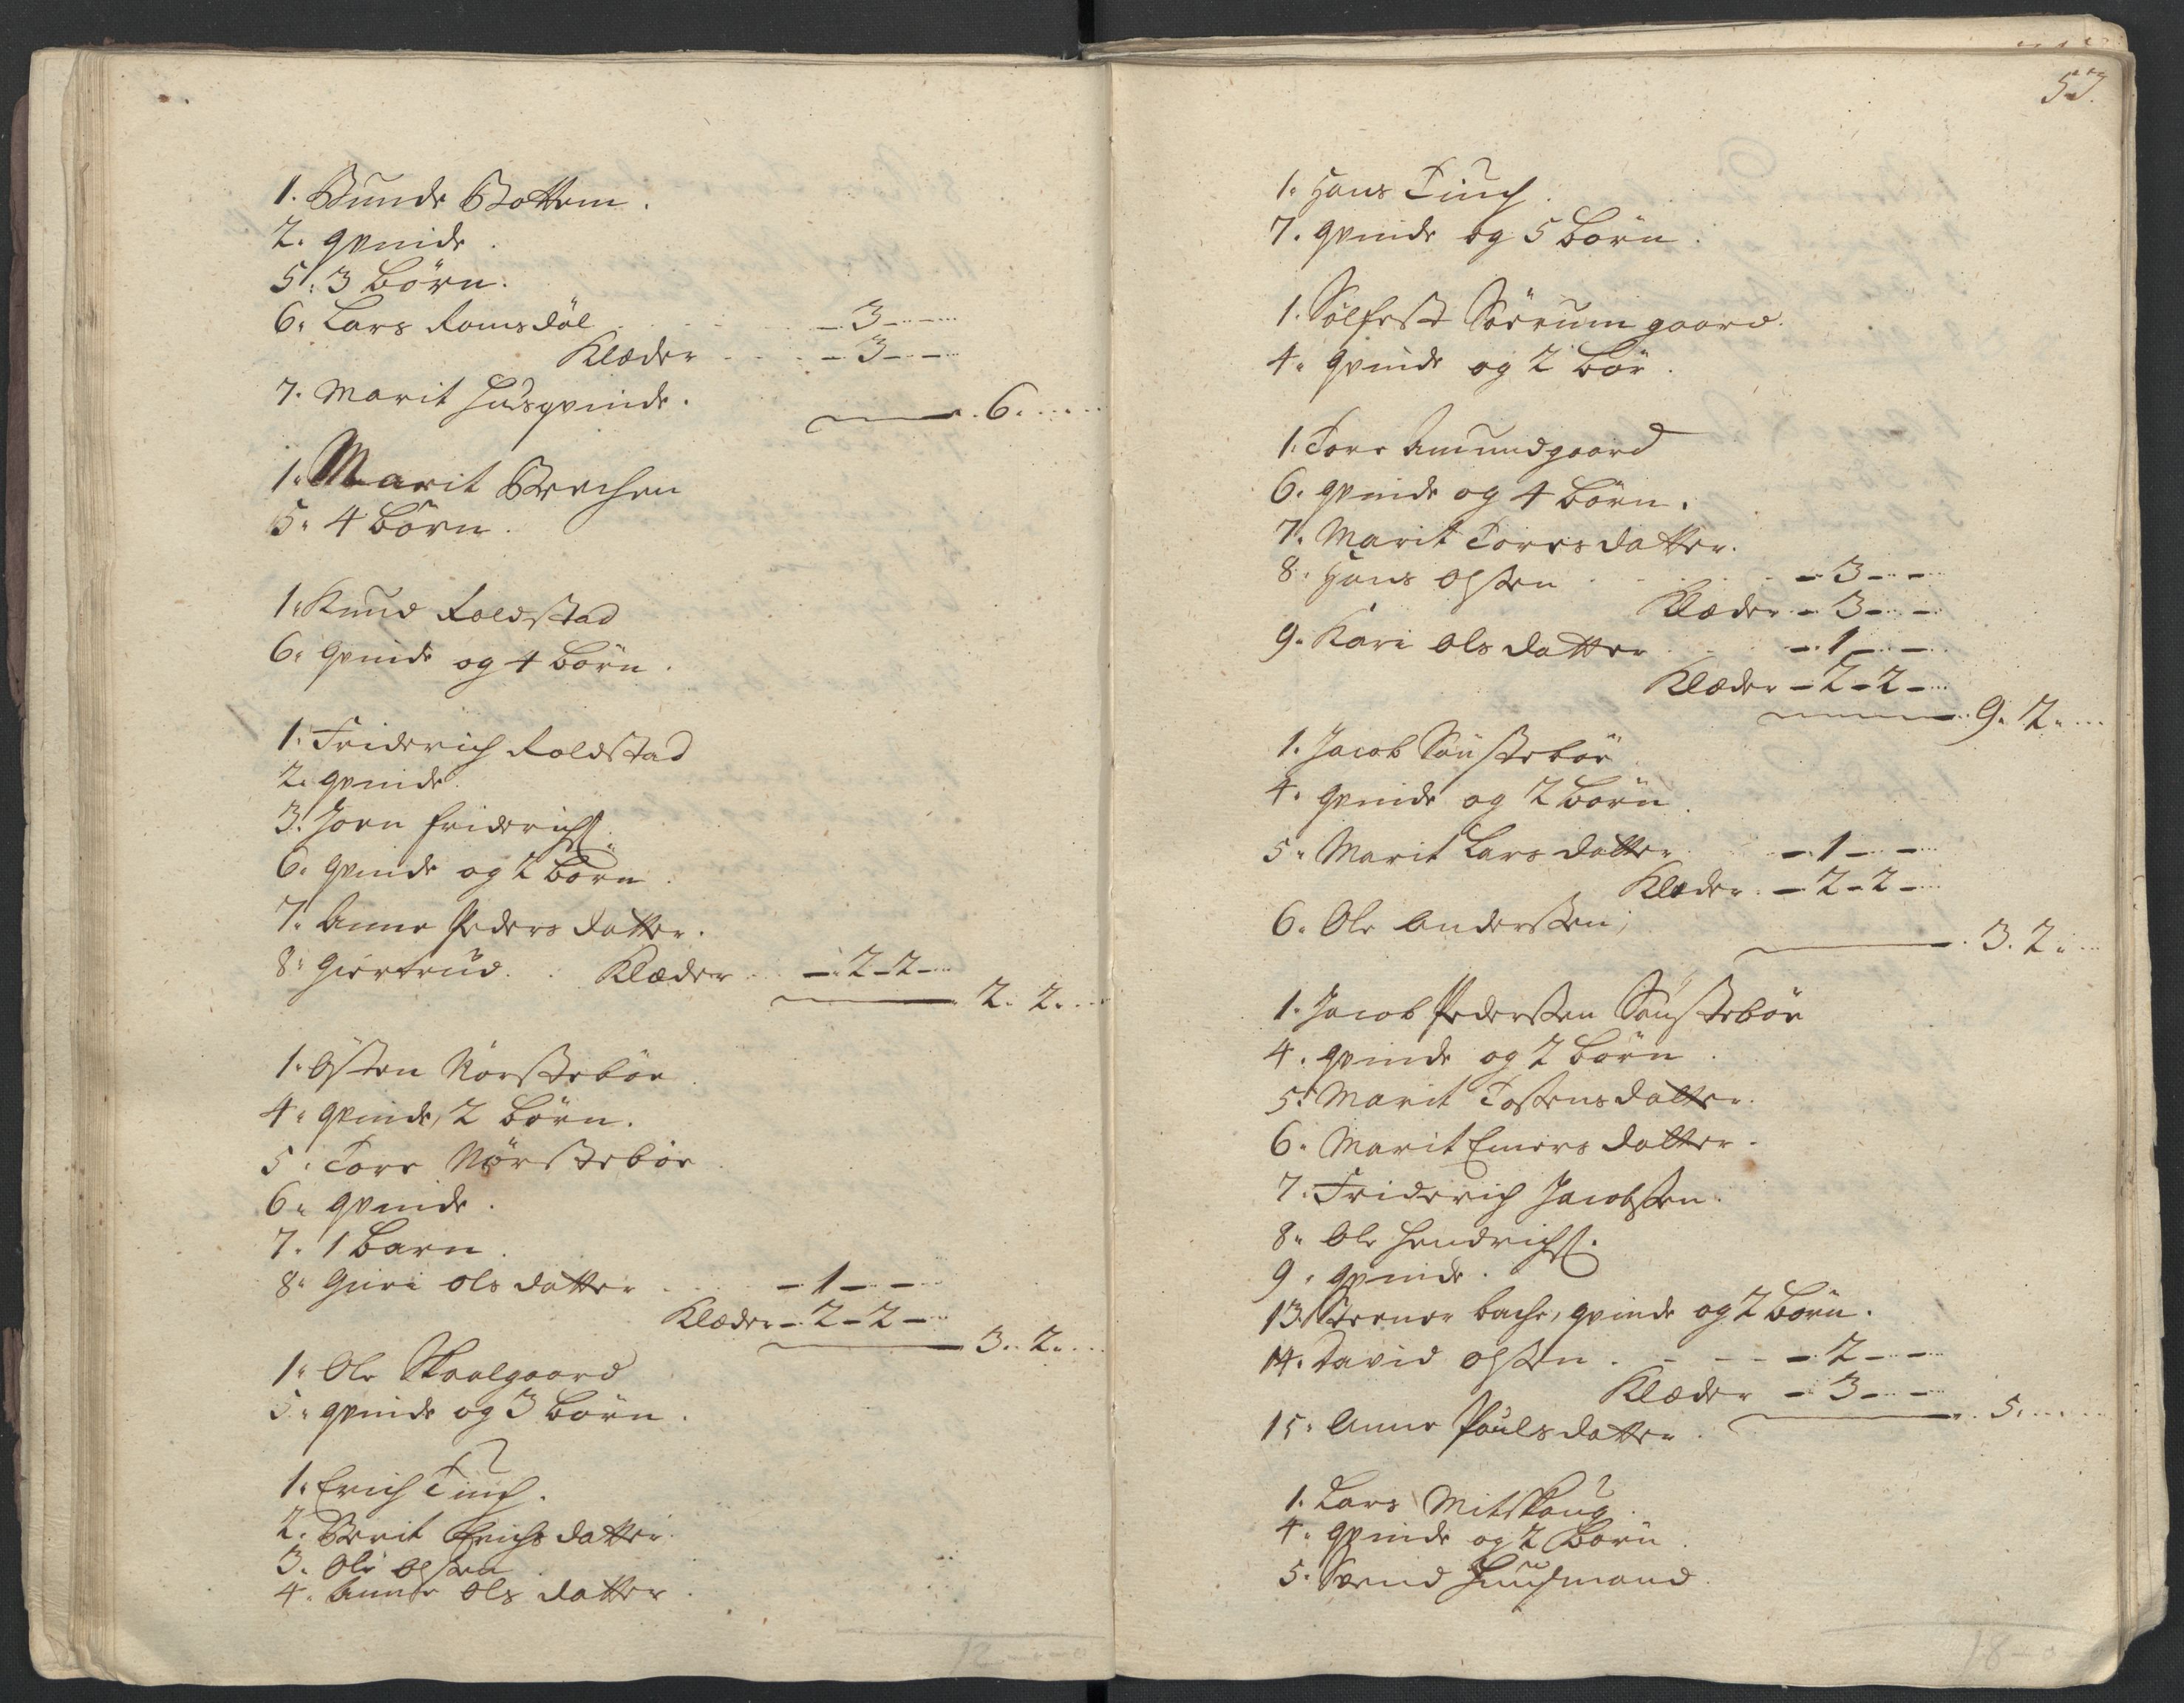 1. Gunde Bottem.
2. qvinde.
5. 3 börn.
6. Lars Romsdöl . . . - 3 - -
Klæder . . . - 3 - -
7. Marit Huusqvinde.
6. . . .
1. Marit Brechen
5. 4 börn.
1. Knud Roldstad
6. qvinde og 4 börn.
1. Friderich Roldstad
2. qvinde.
3. Joen friderichs.
6. qvinde og 2 börn.
7. Anne Peders datter.
8. Giertrud. . Klæder - 2 - 2 -
2. 2. . .
1. Östen Nörsteböe.
4. qvinde, 2 börn.
5. Tore Nörsteböe.
6. qvinde.
7. 1 barn.
8. Guri ols datter . . - 1 - -
Klæder - 2 - 2 -
3. 2. . .
1. Ole Skaalgaard
5. qvinde og 3 börn.
1. Erich Tiuch.
2. Berit Erichs datter.
3. Ole olsen
4. Anne ols datter.
12 - - 0
57.
1. Hans Tiuch.
7. qvinde og 5 börn.
1. Sölfest Söerum gaard.
4. qvinde og 2 bör.
1. Tore Amundgaard
6. qvinde og 4 börn.
7. Marit Tores datter.
8. Hans olsten . . . - 3 - -
Klæder - 3 - -
9. Kari ols datter . . - 1 - -
Klæder - 2 - 2 -
9. 2. . .
1. Jacob Sönsteböe
4. qvinde og 2 börn.
5. Marit Lars datter. - 1 - -
Klæder. - 2 - 2 -
6. Ole andersten,
3. 2. . .
1. Jacob Pedersten Sönsteböe
4. qvinde og 2 börn.
5. Marit Tostens datter.
6. Marit Emers datter.
7. Friderich Jacobsten.
8. Ole Hendrichs.
9. qvinde.
13. Stener bache, qvinde og 2 börn.
14. David olsten . - - - 2 - -
Klæder - 3 - -
15. Anne Pouls datter.
5. . . .
1. Lars Mitskoug.
4. qvinde og 2 börn.
5. Svend Huusmand.
18 - 0 -